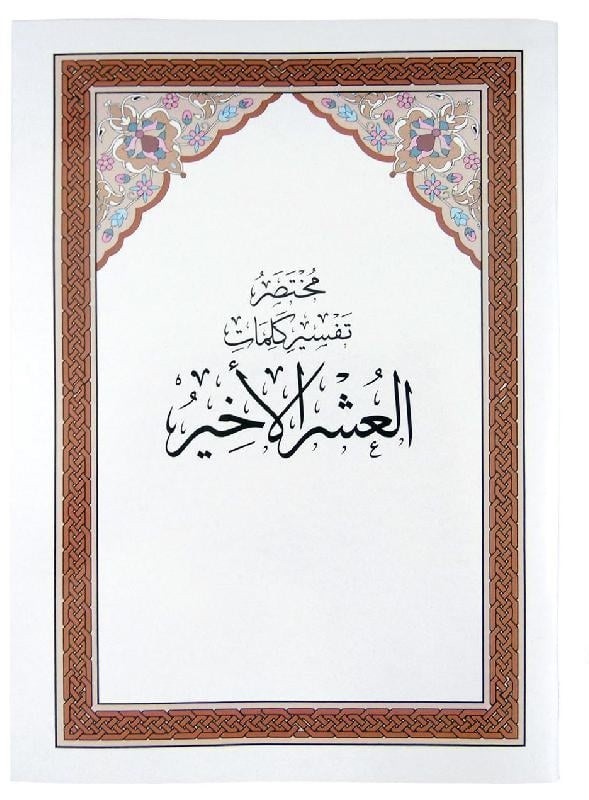 مُخْتَصَرُ
تَفْسِيرِ كَلِمَاتِ
العُشْرِ الأَخِيرُ